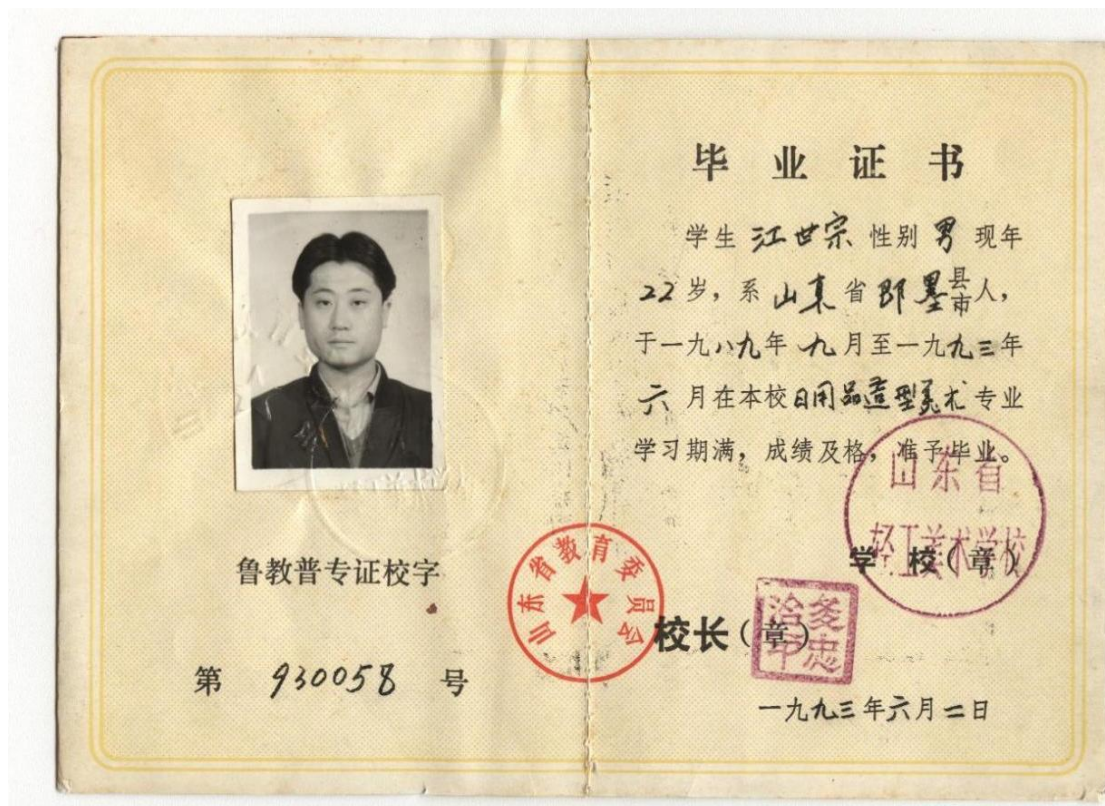 鲁教普专证校字
第 930058 号
山东省教育委员会
毕业证书
学生 江世宗 性别 男 现年
22岁，系 山东省 即墨县市人，
于一九八九年 九月至一九九三年
六 月在本校日用品造型美术专业
学习期满，成绩及格，准予毕业。
山东省
轻工美术学校
学 校（章）
校长（章）
一九九三年六月二日